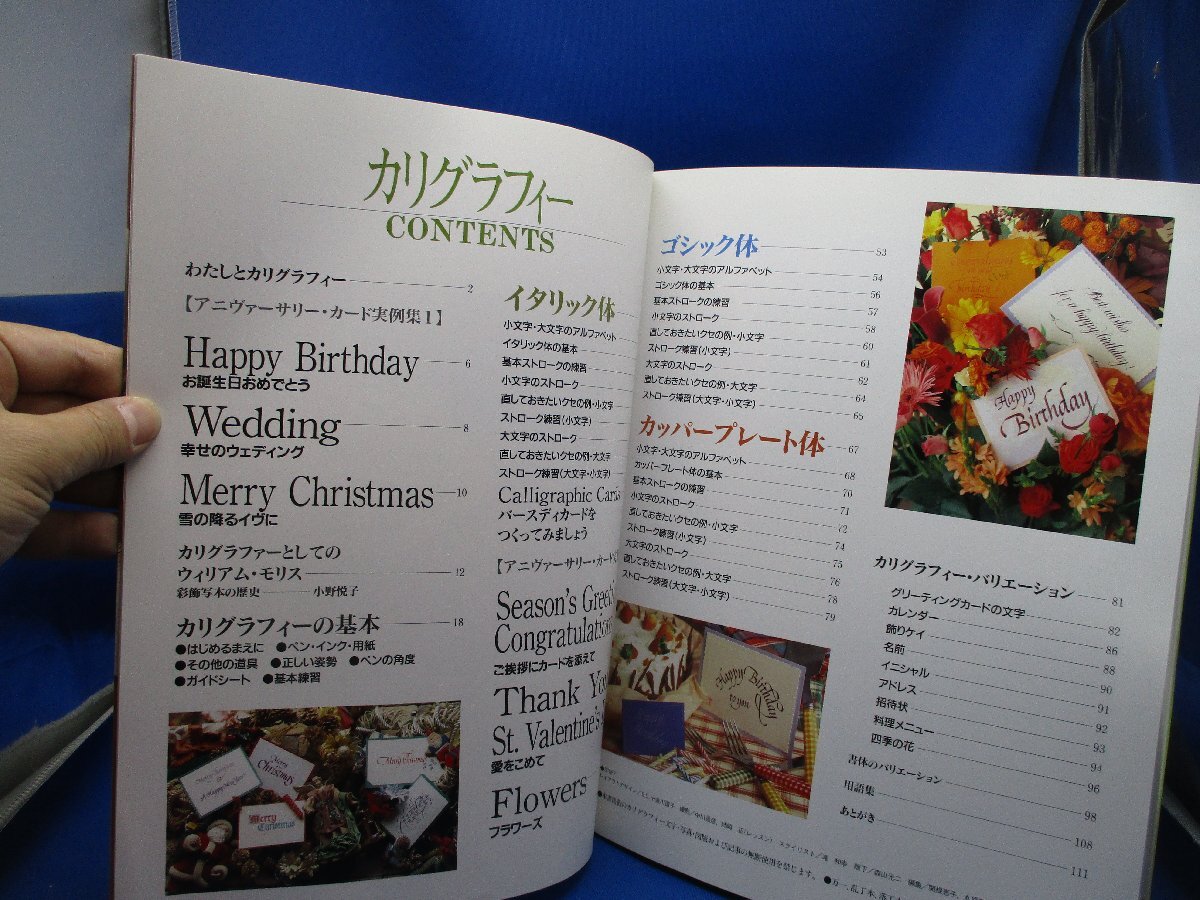 カリグラフィー
CONTENTS
わたしとカリグラフィー 2
【アニヴァーサリー・カード実例集1】
Happy Birthday 6
お誕生日おめでとう
Wedding 8
幸せのウェディング
Merry Christmas 10
雪の降るイヴに
カリグラファーとしての
ウィリアム・モリス 12
彩飾写本の歴史 小野悦子
カリグラフィーの基本 18
●はじめるまえに ●ペン・インク・用紙
●その他の道具 ●正しい姿勢 ●ペンの角度
●ガイドシート ●基本練習
Merry Christmas
Merry Christmas
イタリック体
小文字・大文字のアルファベット
イタリック体の基本
基本ストロークの練習
小文字のストローク
直しておきたいクセの例・小文字
ストローク練習(小文字)
大文字のストローク
直しておきたいクセの例・大文字
ストローク練習(大文字・小文字)
Calligraphic Cards
バースディカードを
つくってみましょう
【アニヴァーサリー・カード
Season's Greet
Congratulat
ご挨拶にカードを添えて
Thank You
St. Valentine's
愛をこめて
Flowers
フラワーズ
ゴシック体 53
小文字・大文字のアルファベット 54
ゴシック体の基本 56
基本ストロークの練習 57
小文字のストローク 58
直しておきたいクセの例・小文字 60
ストローク練習(小文字) 61
大文字のストローク 62
直しておきたいクセの例・大文字 64
ストローク練習(大文字・小文字) 65
カッパープレート体 67
小文字・大文字のアルファベット 68
カッパープレート体の基本 70
基本ストロークの練習 71
小文字のストローク 72
直しておきたいクセの例・小文字 74
ストローク練習(小文字) 75
大文字のストローク 76
直しておきたいクセの例・大文字 78
ストローク練習(大文字・小文字) 79
Happy
Birthday
to you
Best wishes
for a happy birthday!
Happy
Birthday
カリグラフィー・バリエーション 81
グリーティングカードの文字 82
カレンダー 86
飾りケイ 88
名前 90
イニシャル 91
アドレス 92
招待状 93
料理メニュー 94
四季の花 96
書体のバリエーション 98
用語集 108
あとがき 111